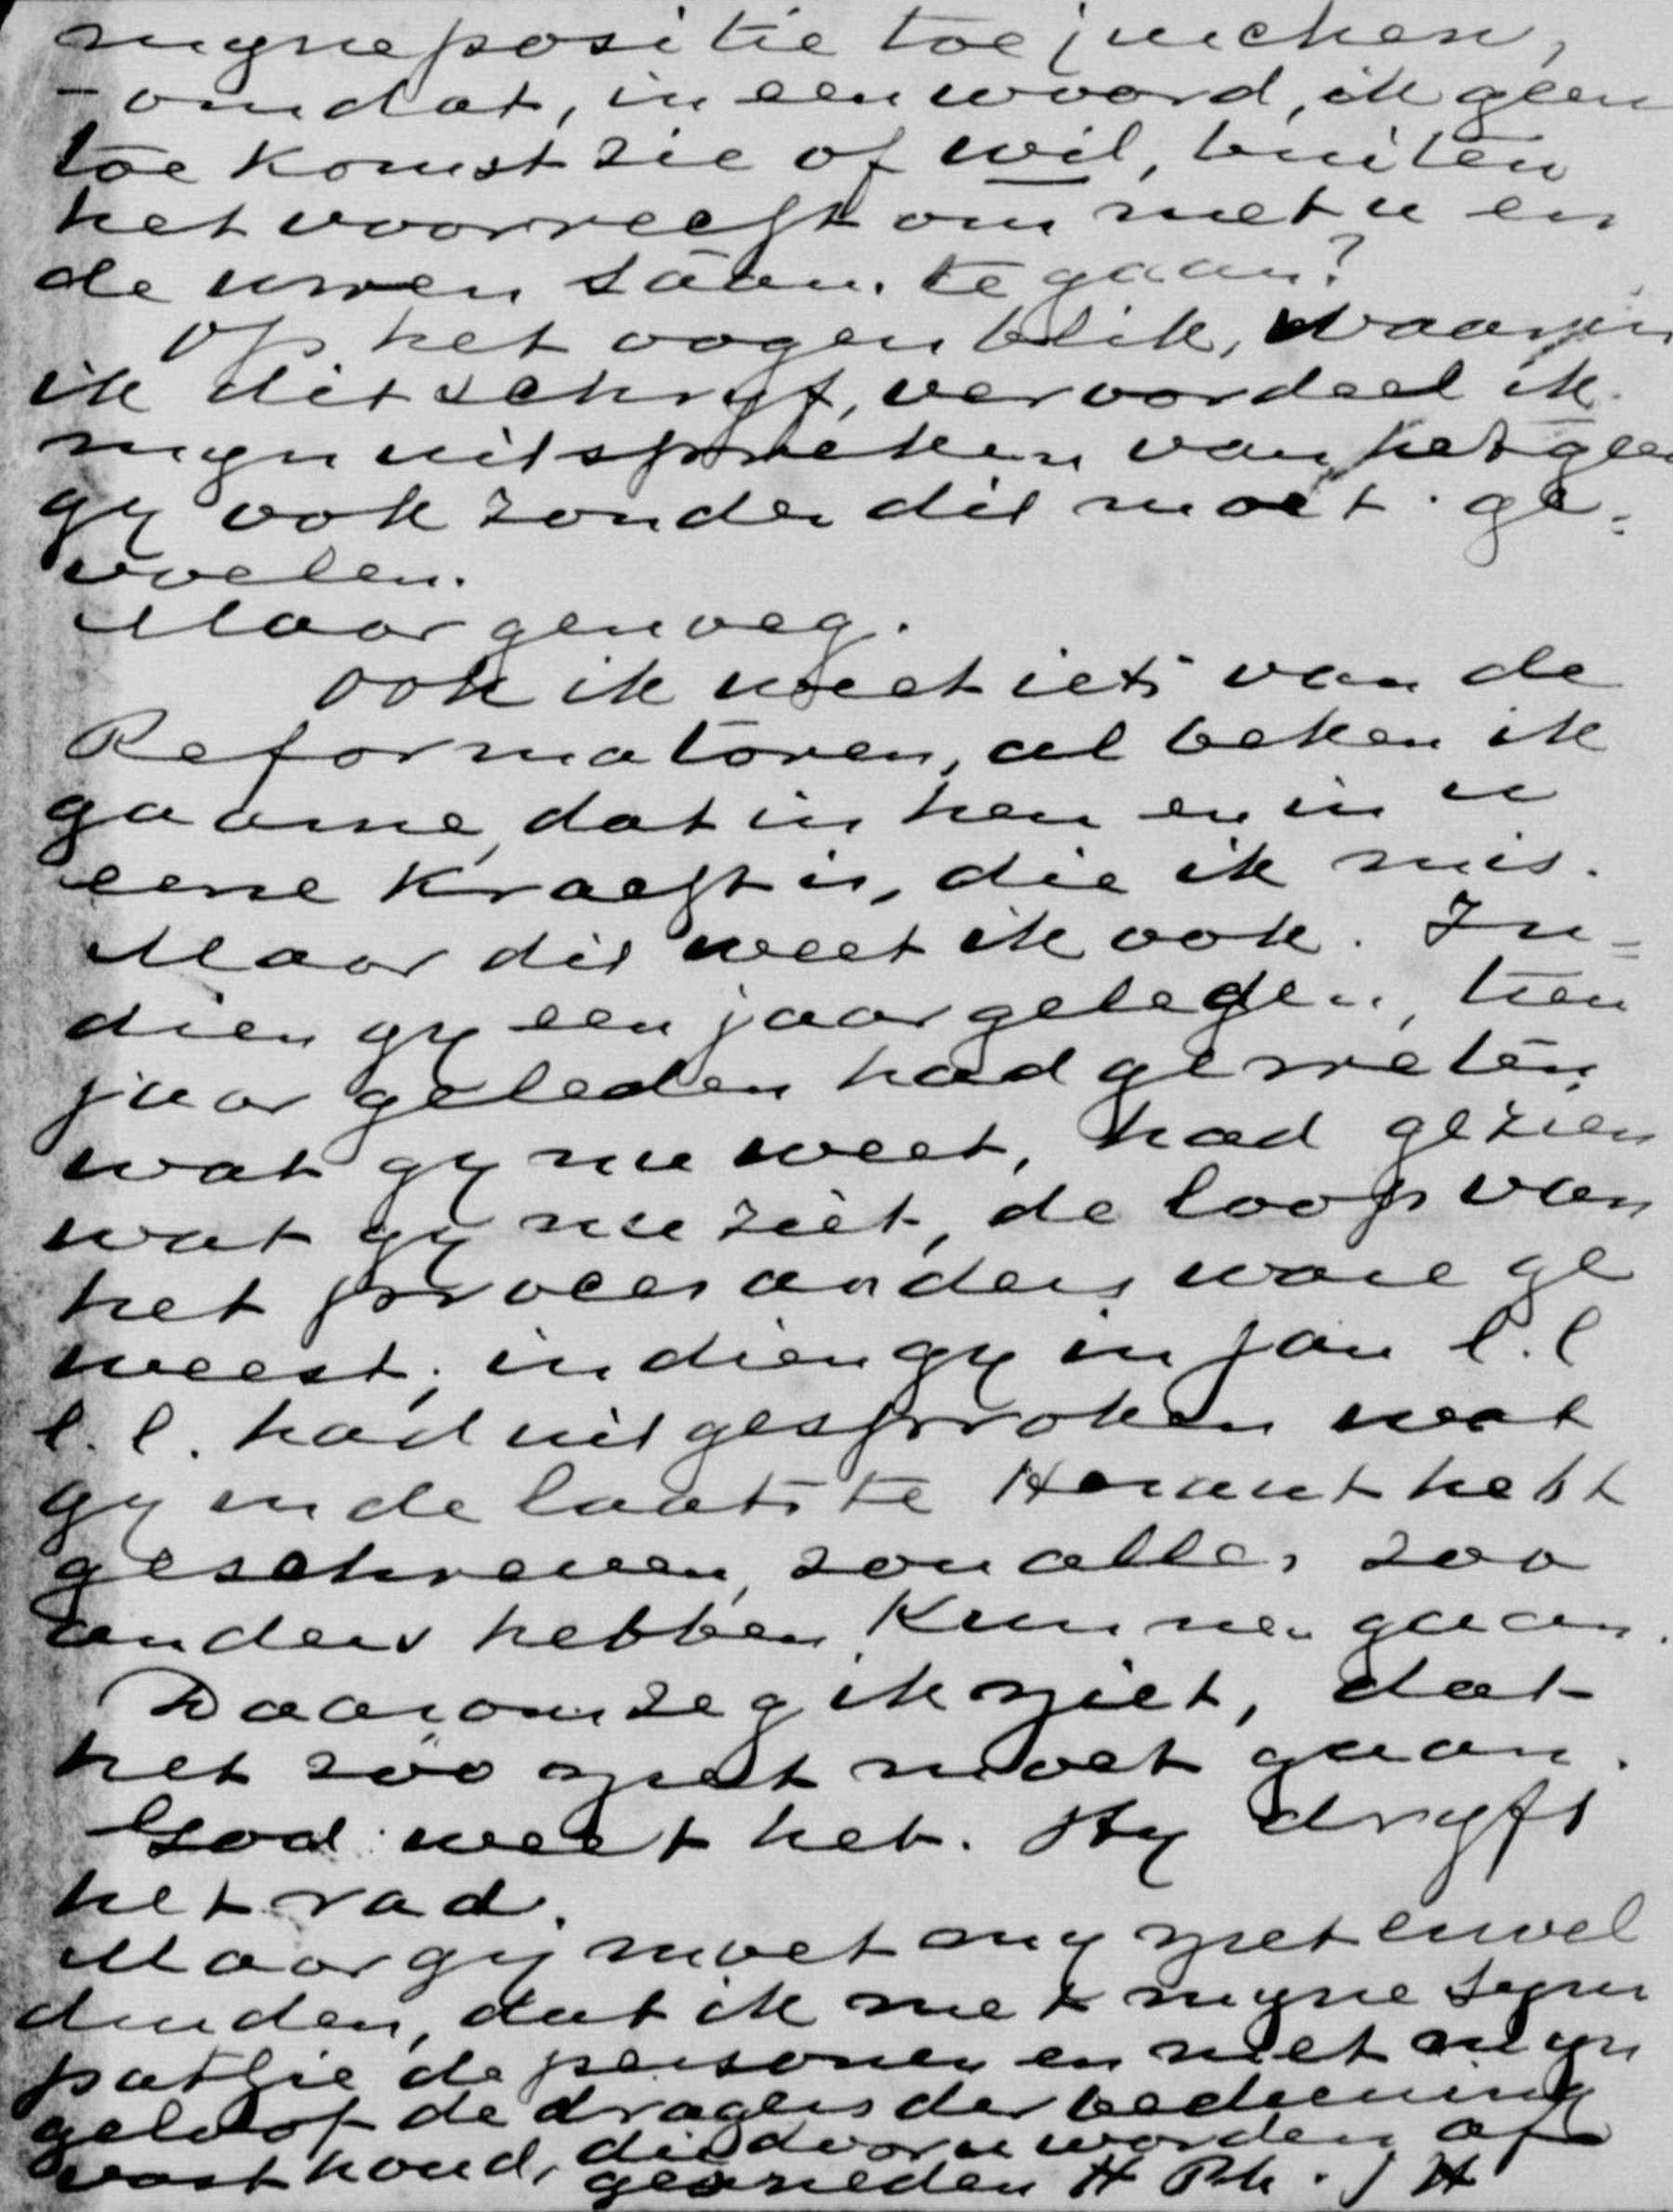 myne positie toejuichen,
- omdat, in een woord, ik geen
toekomst zie of wil, buiten
het voorrecht om met u en
de uwen saam te gaan?
Op het oogenblik, waarin
ik dit schryf, veroordeel ik
myn uitspreken van hetgeen
gy ook zonder dit moet ge-
voelen.
Maar genoeg.
Ook ik weet iets van de
Reformatoren, al beken ik
gaarne, dat in hen en in u
eene kracht is, die ik mis.
Maar dit weet ik ook. In-
dien gy een jaar geleden, tien
jaar geleden had geweten
wat gy nu weet, had gezien
wat gy nu ziet, de loop van
het proces anders ware ge
weest; indien gy in Jan l.l
l.l. had uitgesproken wat
gy in de laatste Heraut hebt
geschreven, zou alles zoo
anders hebben kunnen gaan.
Daarom zeg ik niet, dat
het zóó niet moet gaan.
God weet het. Hy dryft
het rad.
Maar gij moet my niet euvel
duiden, dat ik met myne sym
pathie de personen en met myn
geloof de dragers der bediening
vasthoud, die door u worden af
gesneden H Ph. J H